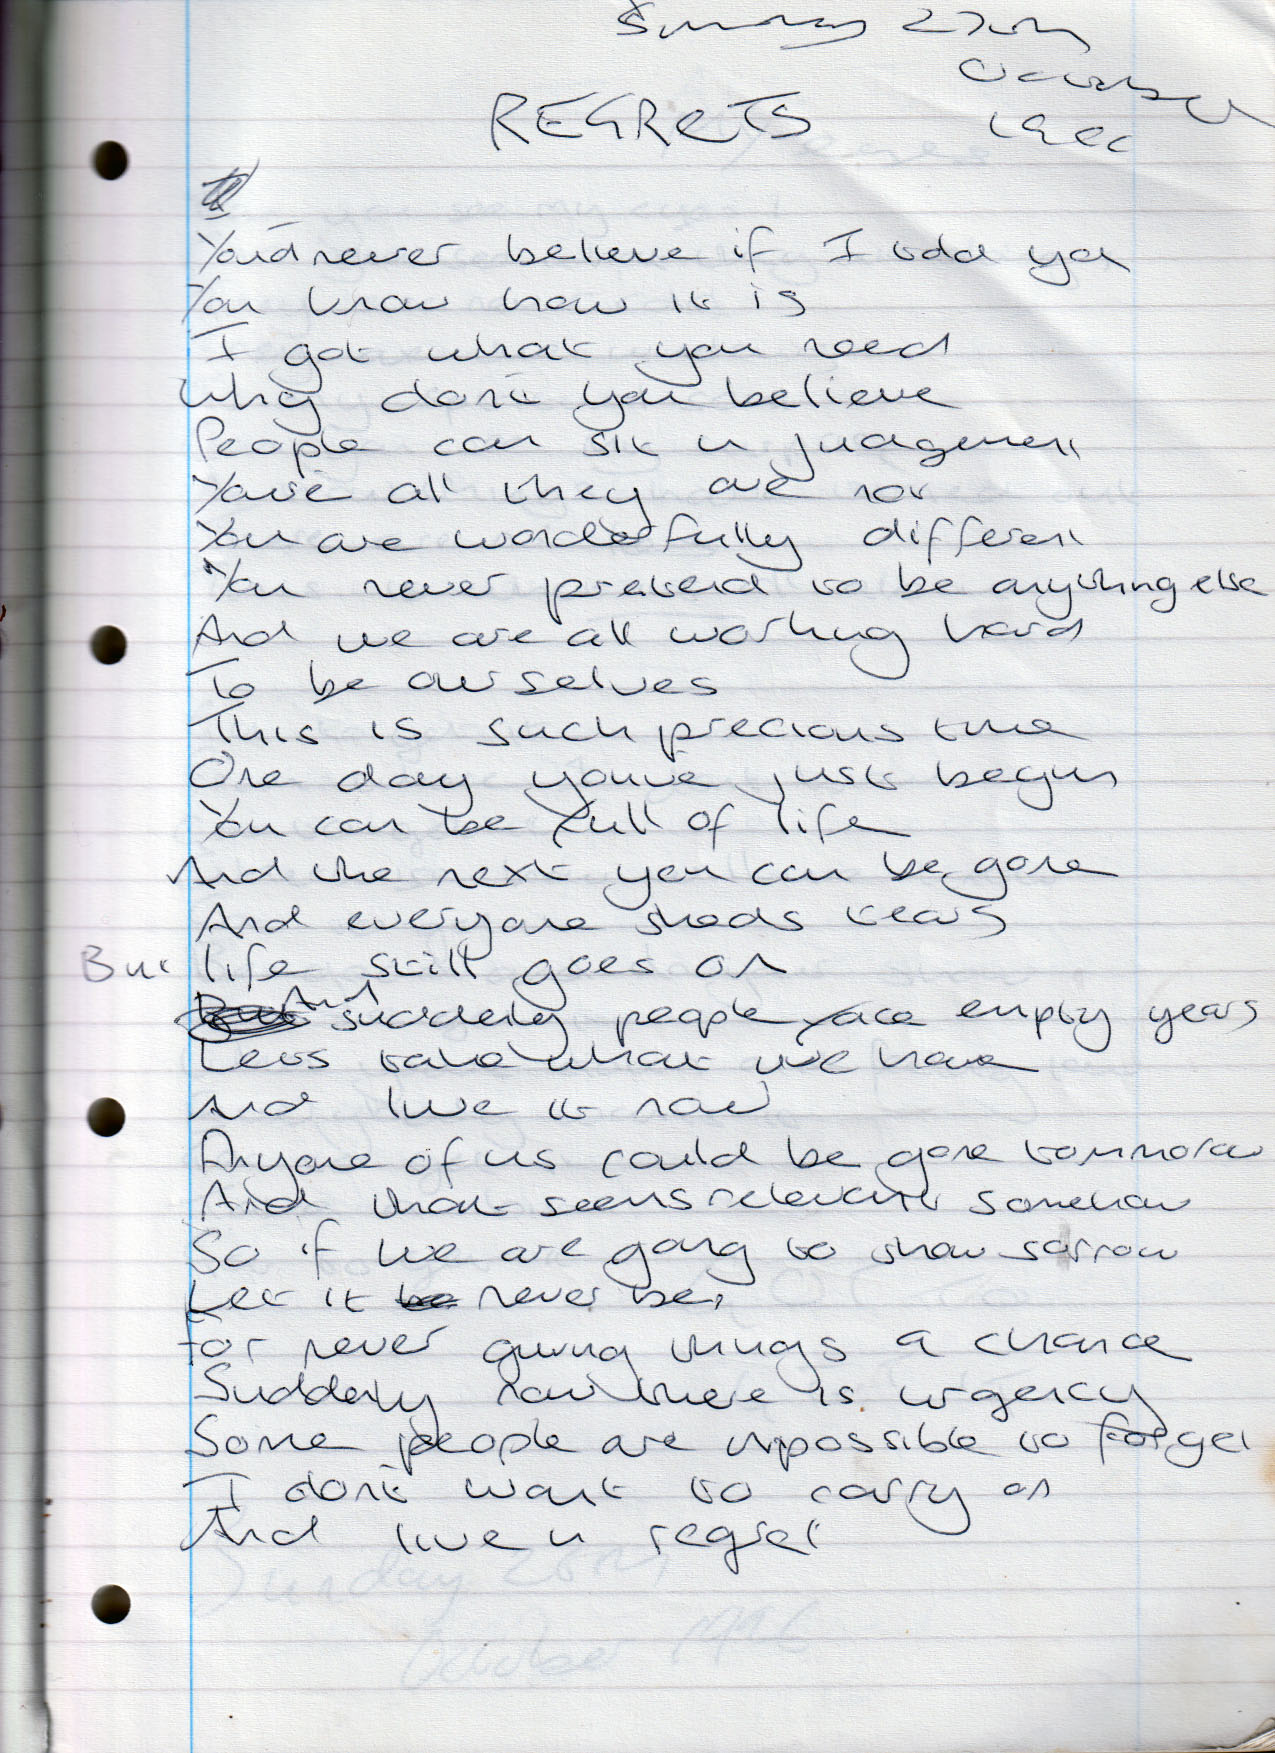 Sunday 27th
October
1996
REGRETS
You'd never believe if I told you
You know how it is
I got what you need
Why don't you believe
People can sit in judgement
You're all they are not
You are wonderfully different
You never pretend to be anything else
And we are all working hard
To be ourselves
This is such precious time
One day you've just begun
You can be full of life
And the next you can be gone
And everyone sheds tears
But life still goes on
And suddenly people face empty years
Lets take what we have
And live it now
Anyone of us could be gone tommorow
And that seems relevant somehow
So if we are going to show sorrow
Let it be never be,
for never giving things a chance
Suddenly now there is urgency
Some people are impossible to forget
I don't want to carry on
And live in regret